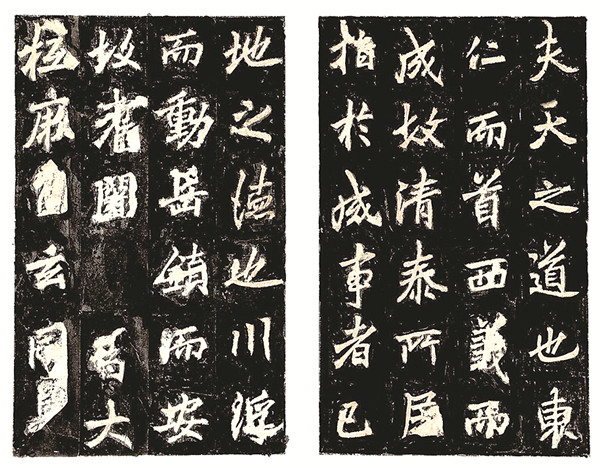 夫天之道也東
仁而首西義而
成故清泰所居
指於成事者已
地之德也川浮
而動岳鎮而安
故耆闍大
抵玄同